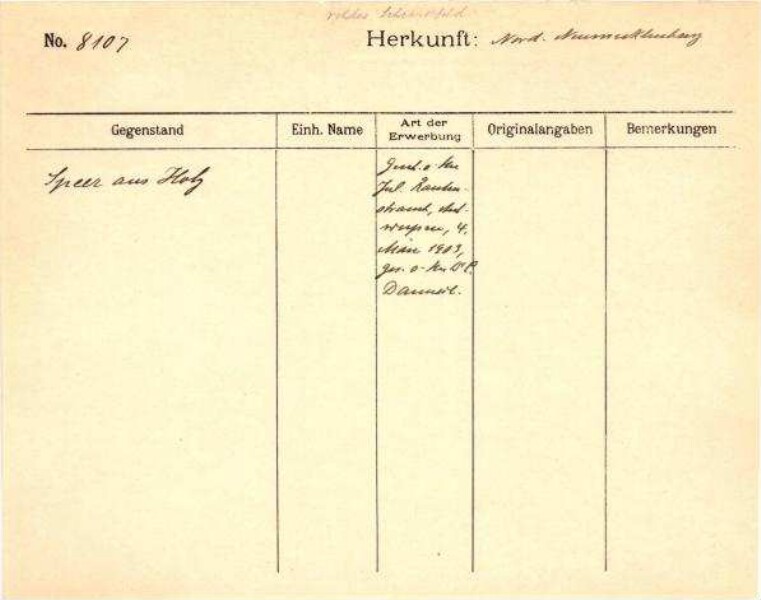 No. 8107
Herkunft: Nord. Neumecklenburg
Gegenstand
Einh. Name
Art der
Erwerbung
Originalangaben
Bemerkungen
Speer aus Holz
Jul. Rauten-
strauch, Ant-
werpen, 4.
März 1903,
ges. v. Hn Dr P.
Danneil.